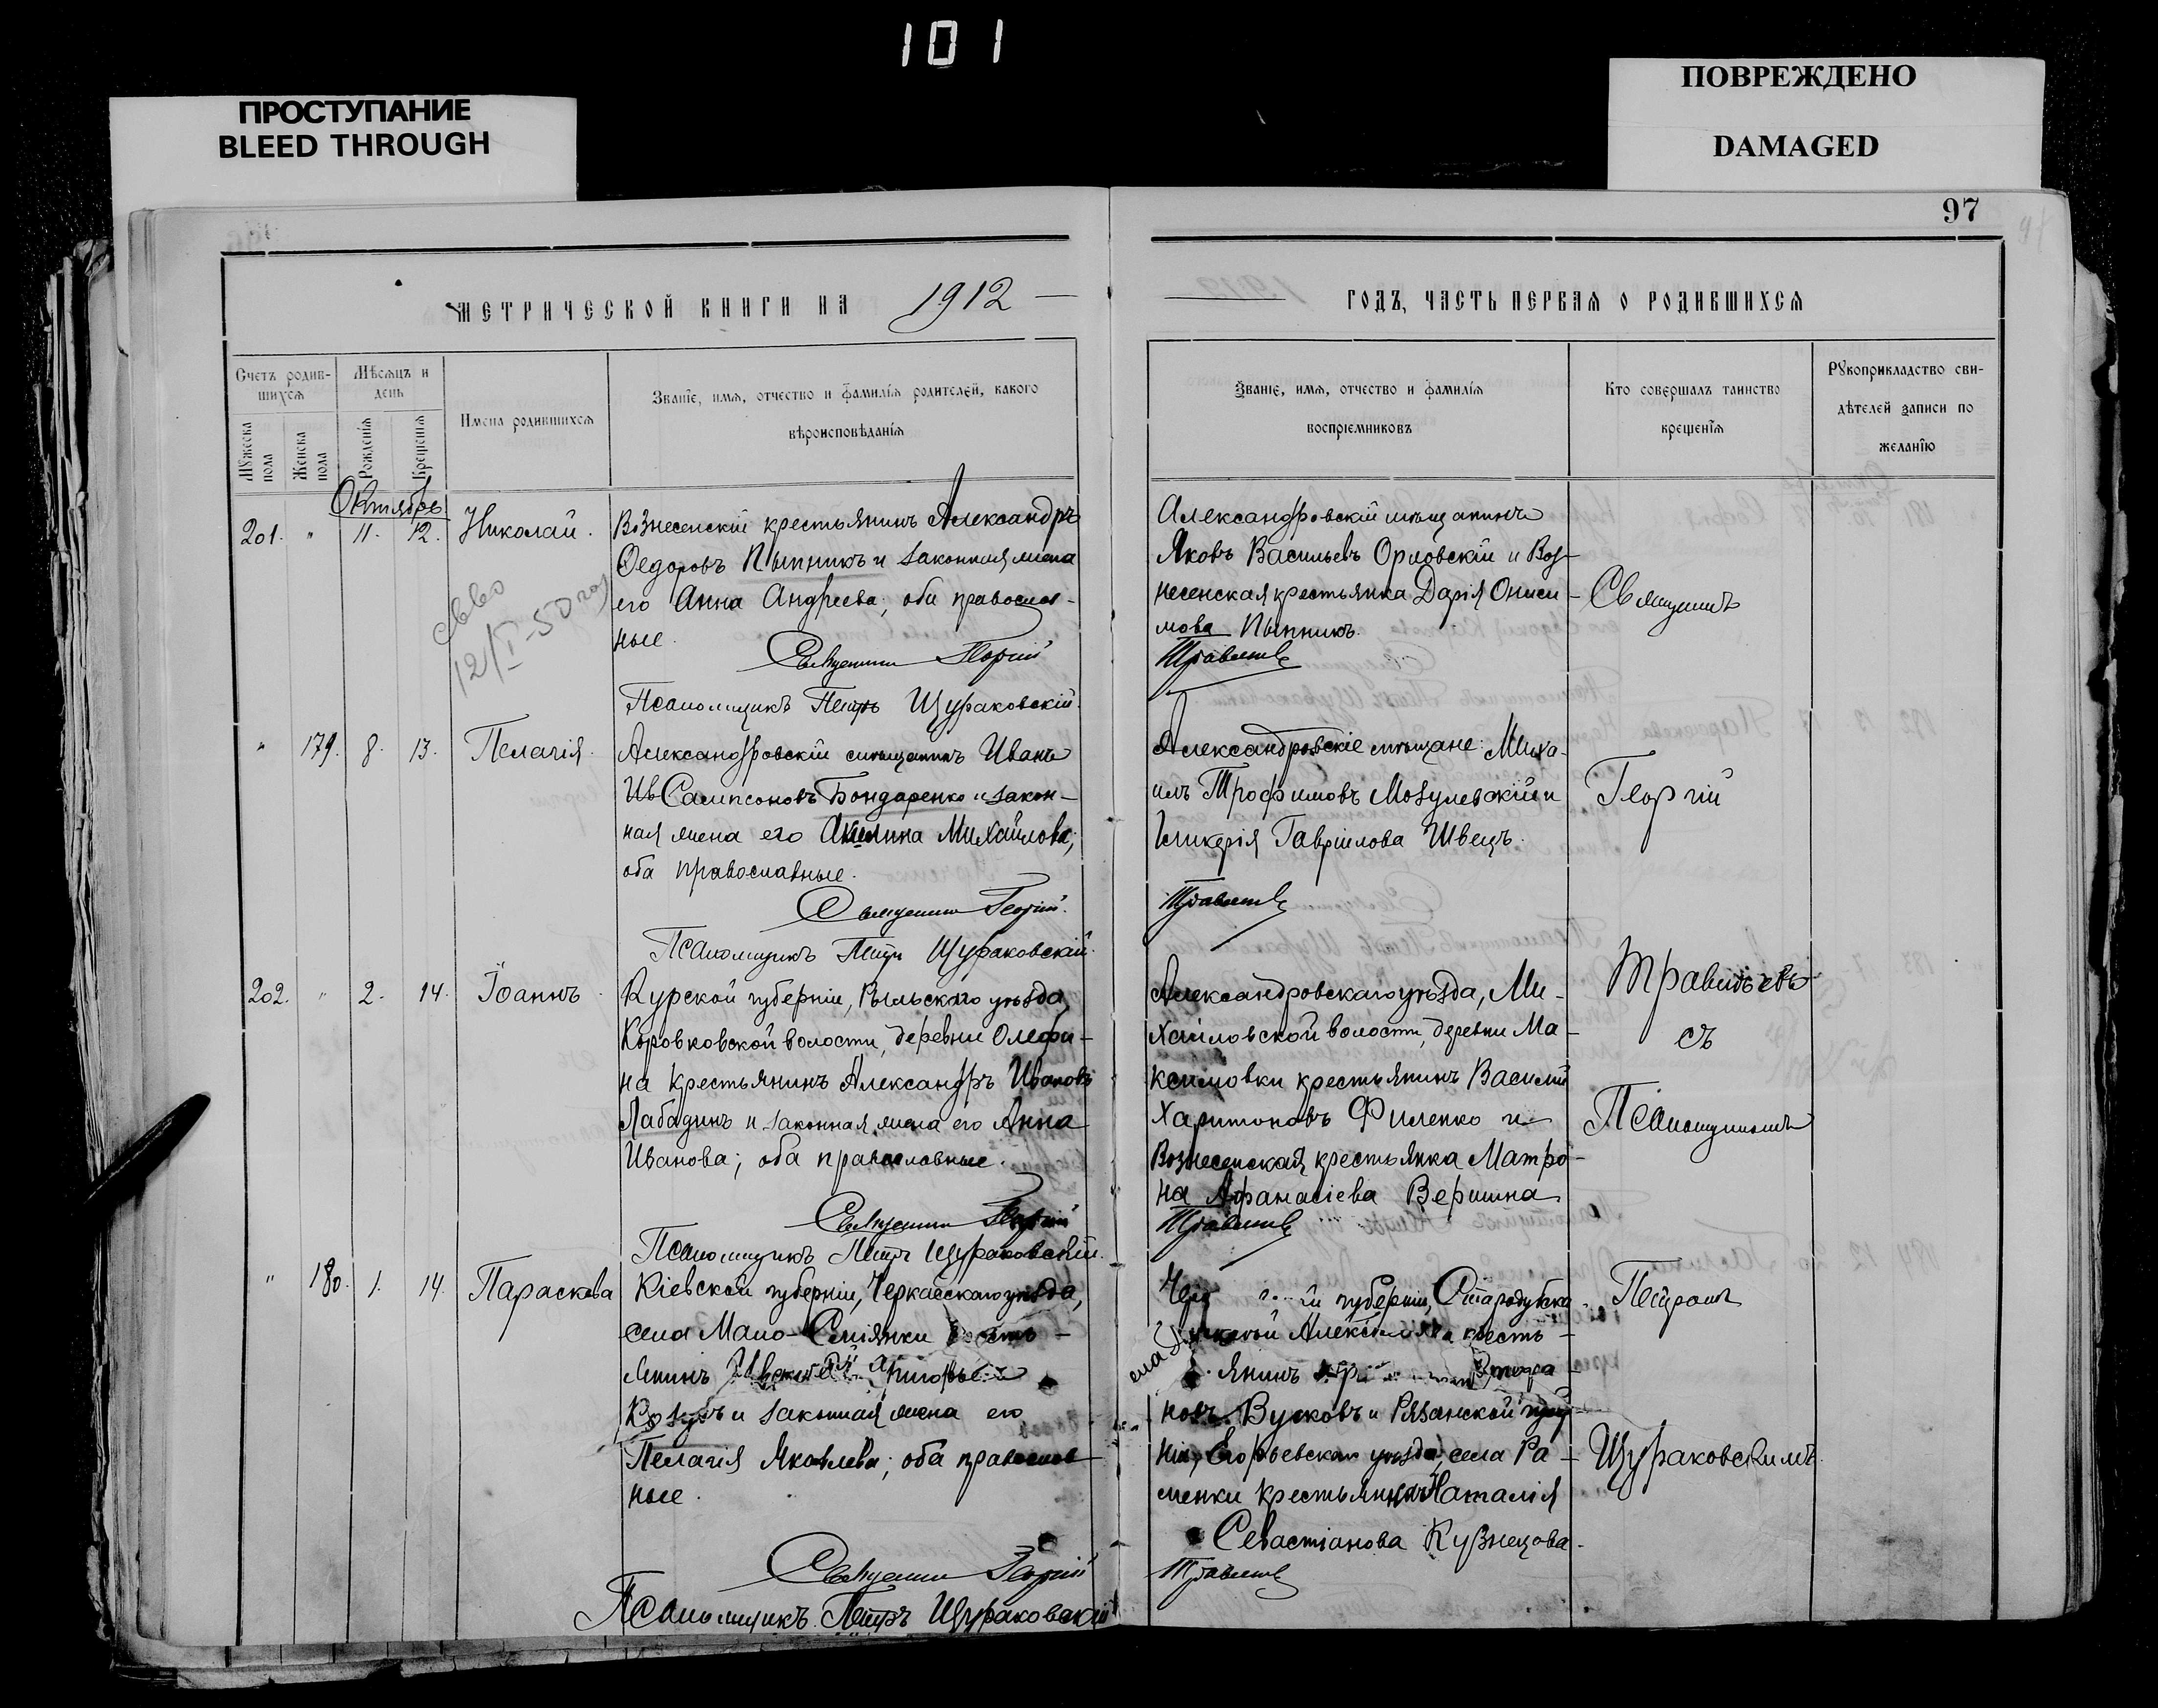 101
ПРОСТУПАНИЕ
BLEED THROUGH
ПОВРЕЖДЕНО
DAMAGED
97
МЕТРИЧЕСКОЙ КНИГИ НА 1912
ГОДЪ, ЧАСТЬ ПЕРВАЯ О РОДИВШИХСЯ
Счетъ родив-
шихся
Мѣсяцъ и
день
Мужеска
пола
Женска
пола
Рожденія
Крещенія
Имена родившихся
Званіе, имя, отчество и фамилія родителей, какого
вѣроисповѣданія
Званіе, имя, отчество и фамилія
воспріемниковъ
Кто совершалъ таинство
крещенія
Рукоприкладство сви-
дѣтелей записи по
желанію
Октябрь
201. " 11. 12. Николай.
Вознесенскій крестьянинъ Александръ
Ѳедоровъ Пыпникъ и законная жена
его Анна Андреева; оба православ-
ные.
Священникъ Георгій
Псаломщикъ Петръ Щураковскій.
св-во
12/I-50 год
Александровскій мѣщанинъ
Яковъ Васильевъ Орловскій и Воз-
несенская крестьянка Дарія Ониси-
мова Пыпникъ.
Травлѣевъ
Священникъ
" 179. 8. 13. Пелагія.
Александровскій мѣщанинъ Иванъ
Ив Сампсоновъ Бондаренко и закон-
ная жена его Акилина Михайлова;
оба православные.
Священникъ Георгій.
Псаломщикъ Петръ Щураковскій.
Александровскіе мѣщане: Миха-
илъ Трофимовъ Мозулевскій и
Гликерія Гавріилова Швецъ.
Травлѣевъ
Георгій
202. " 2. 14. Іоаннъ.
Курской губерніи, Рыльскаго уѣзда,
Коровковской волости, деревни Олефи-
на крестьянинъ Александръ Ивановъ
Лабадинъ и законная жена его Анна
Иванова; оба православные.
Священникъ Георгій
Псаломщикъ Петръ Щураковскій.
Александровскаго уѣзда, Ми-
хайловской волости, деревни Ма-
ксимовки крестьянинъ Василій
Харитоновъ Филенко и
Вознесенская крестьянка Матро-
на Афанасіева Вершина
Травлѣевъ
Травлѣевъ
съ
Псаломщикомъ
" 180. 1. 14. Параскева
Кіевской губерніи, Черкасскаго уѣзда,
села Мало-Смілянки кресть-
янинъ
Козубъ и законная жена его
Пелагія Яковлева; оба православ-
ные.
Священникъ Георгій
Псаломщикъ Петръ Щураковскій
губерніи, Стародубска
кресть-
янинъ
новъ Вусковъ и Рязанской губер-
ніи, Егорьевскаго уѣзда, села Ра-
менки крестьянка Наталія
Севастіанова Кузнецова.
Травлѣевъ
Петромъ
Щураковскимъ.